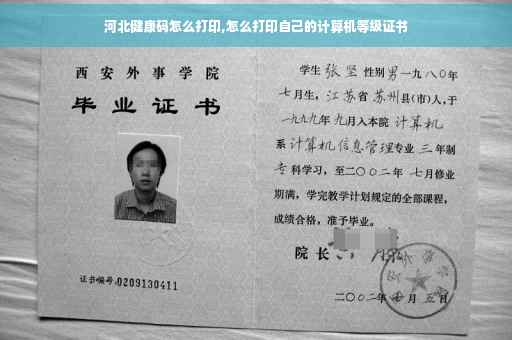 河北健康码怎么打印,怎么打印自己的计算机等级证书
西安外事学院
毕业证书
证书编号:0209130411
学生 张坚 性别 男 一九八〇年
七月生，江苏省 苏州县(市)人，于
一九九九年 九月入本院 计算机
系 计算机信息管理专业 三年制
专科学习，至二〇〇二年 七月修业
期满，学完教学计划规定的全部课程，
成绩合格，准予毕业。
院长
二〇〇二年 月 五日